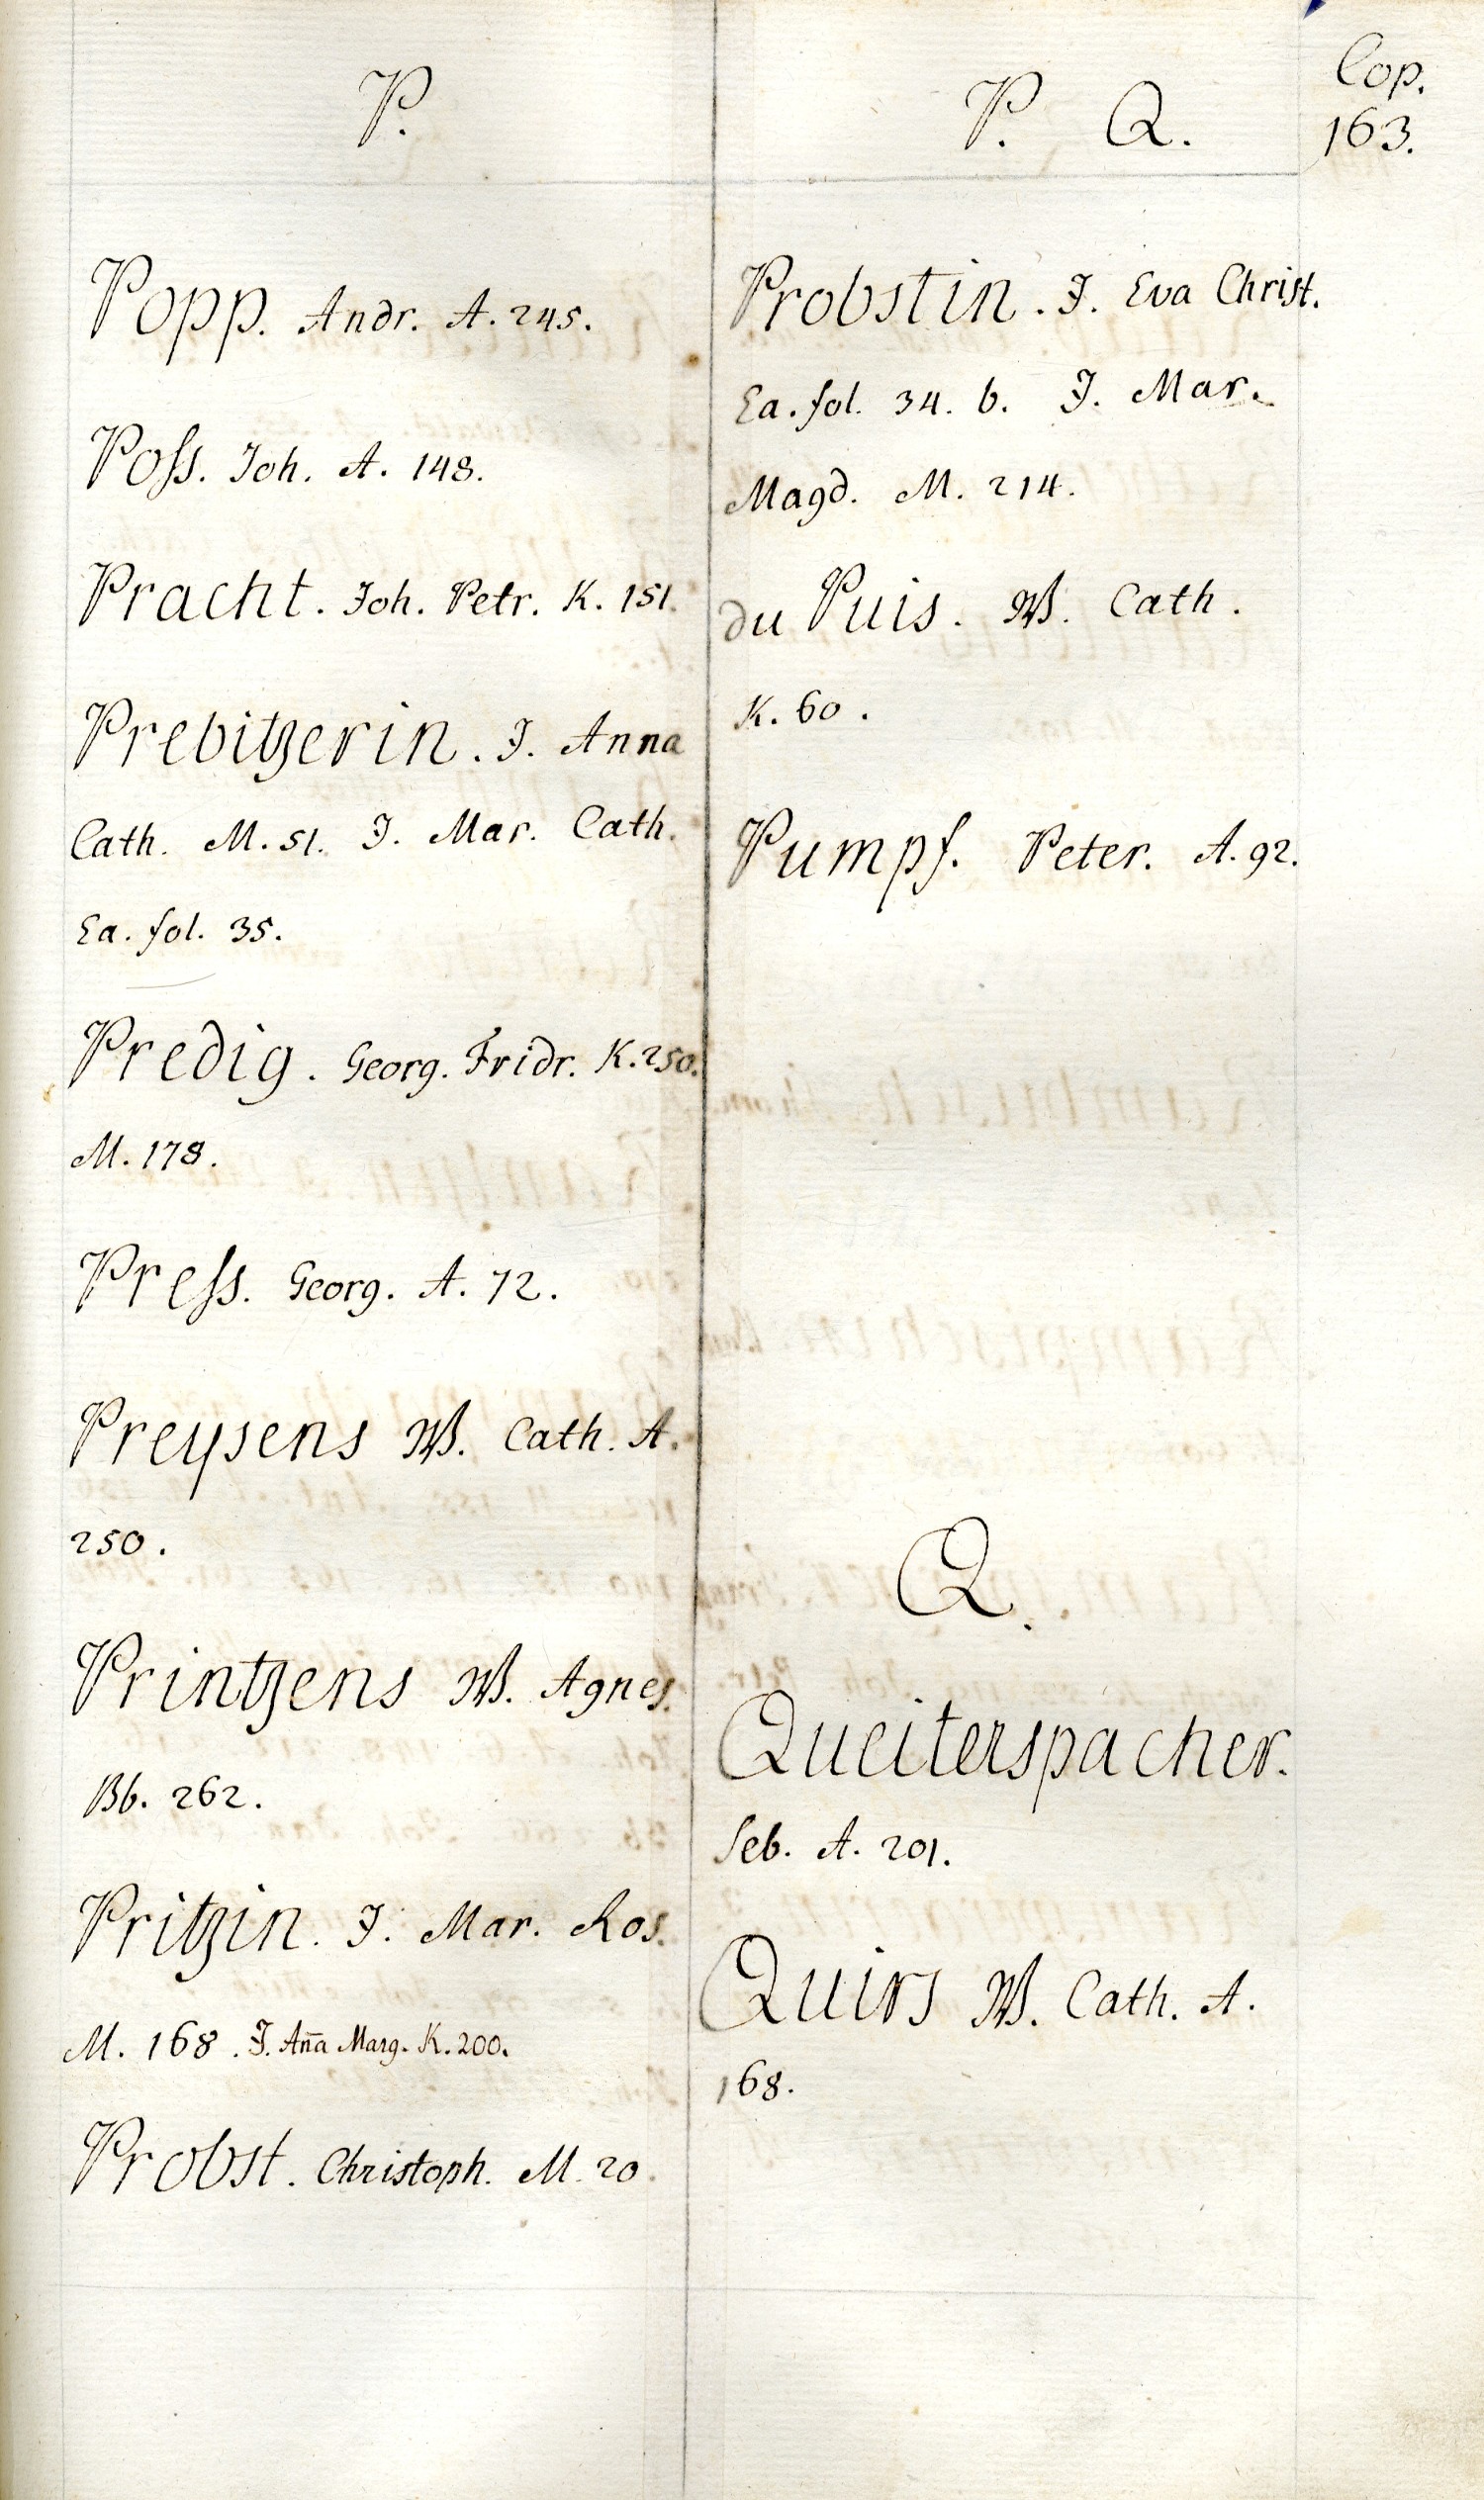 P.
Popp. Andr. A. 245.
Poſs. Joh. A. 148.
Pracht. Joh. Petr. K. 151.
Prebitzerin. J. Anna
Cath. M. 51. J. Mar. Cath.
Ea. fol. 35.
Predig. Georg. Fridr. K. 250.
M. 178.
Preſs. Georg. A. 72.
Preysens W. Cath. A.
250.
Printzens W. Agnes.
Bb. 262.
Pritzin. J. Mar. Ros.
M. 168. J. Aña Marg. K. 200.
Probst. Christoph. M. 20.
P. Q.
Cop.
163.
Probstin. J. Eva Christ.
Ea. fol. 34. b. J. Mar.
Magd. M. 214.
du Puis. W. Cath.
K. 60.
Pumpf. Peter. A. 92.
Q.
Queiterspacher.
Seb. A. 201.
Quirs W. Cath. A.
168.